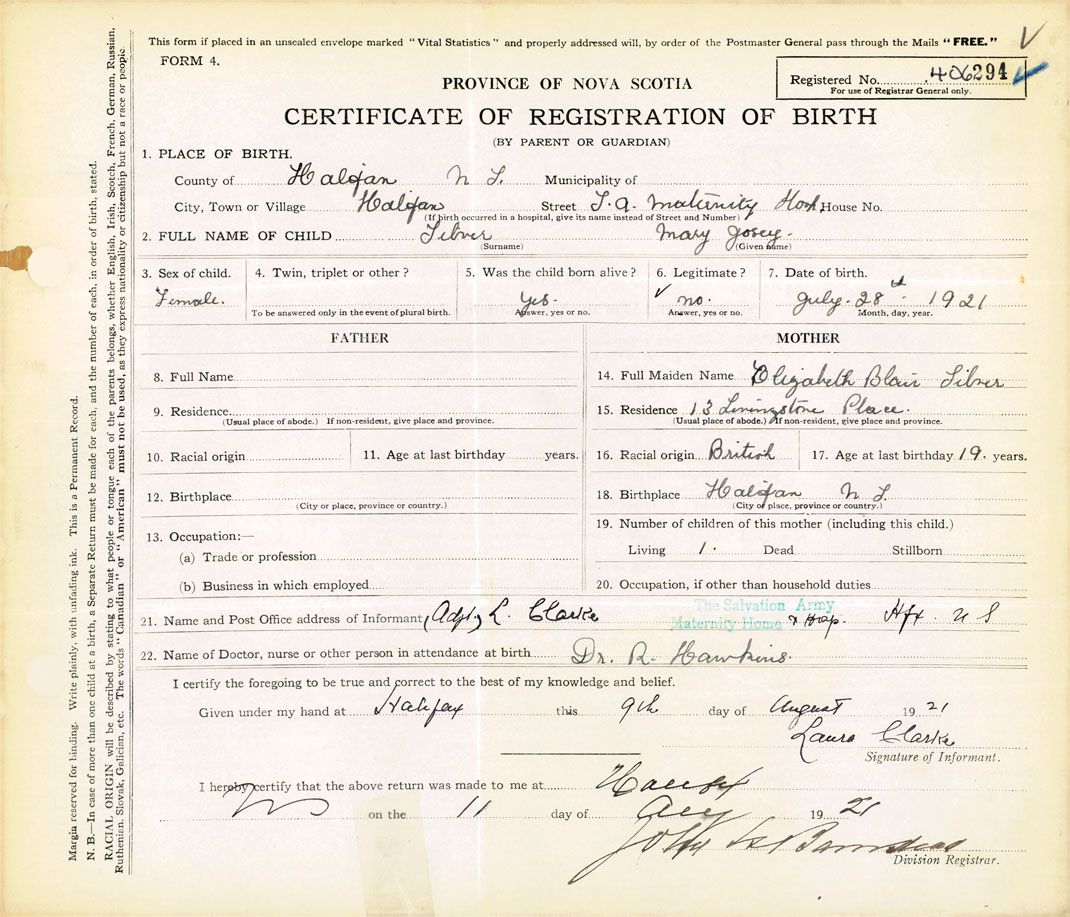 This form if placed in an unsealed envelope marked "Vital Statistics" and properly addressed will, by order of the Postmaster General pass through the Mails "FREE."
FORM 4.
Registered No. 406294
For use of Registrar General only.
PROVINCE OF NOVA SCOTIA
CERTIFICATE OF REGISTRATION OF BIRTH
(BY PARENT OR GUARDIAN)
1. PLACE OF BIRTH.
County of Halifax N S. Municipality of
City, Town or Village Halifax Street S. A. Maternity Hosp. House No.
(If birth occurred in a hospital, give its name instead of Street and Number)
2. FULL NAME OF CHILD Silver Mary Josey.
(Surname) (Given name)
3. Sex of child. 4. Twin, triplet or other? 5. Was the child born alive? 6. Legitimate? 7. Date of birth.
Female. Yes. no. July. 28th 1921
To be answered only in the event of plural birth. Answer, yes or no. Answer, yes or no. Month, day, year.
FATHER
8. Full Name
9. Residence
(Usual place of abode.) If non-resident, give place and province.
10. Racial origin 11. Age at last birthday years.
12. Birthplace
(City or place, province or country.)
13. Occupation:—
(a) Trade or profession
(b) Business in which employed
MOTHER
14. Full Maiden Name Elizabeth Blair Silver
15. Residence 13 Livingstone Place.
(Usual place of abode.) If non-resident, give place and province.
16. Racial origin British 17. Age at last birthday 19. years.
18. Birthplace Halifax N S.
(City or place, province or country.)
19. Number of children of this mother (including this child.)
Living 1. Dead Stillborn
20. Occupation, if other than household duties
21. Name and Post Office address of Informant (Adjt.) L. Clarke The Salvation Army
Maternity Home & Hosp. Hfx. N S
22. Name of Doctor, nurse or other person in attendance at birth Dr. R. Hawkins.
I certify the foregoing to be true and correct to the best of my knowledge and belief.
Given under my hand at Halifax this 9th day of August 1921
Laura Clarke
Signature of Informant.
I hereby certify that the above return was made to me at Halifax
on the 11 day of Aug 1921
Division Registrar.
Margin reserved for binding. Write plainly, with unfading ink. This is a Permanent Record.
N. B.—In case of more than one child at a birth, a Separate Return must be made for each, and the number of each, in order of birth, stated.
RACIAL ORIGIN will be described by stating to what people or tongue each of the parents belongs, whether English, Irish, Scotch, French, German, Russian,
Ruthenian, Slovak, Galician, etc. The words "Canadian" or "American" must not be used, as they express nationality or citizenship but not a race or people.